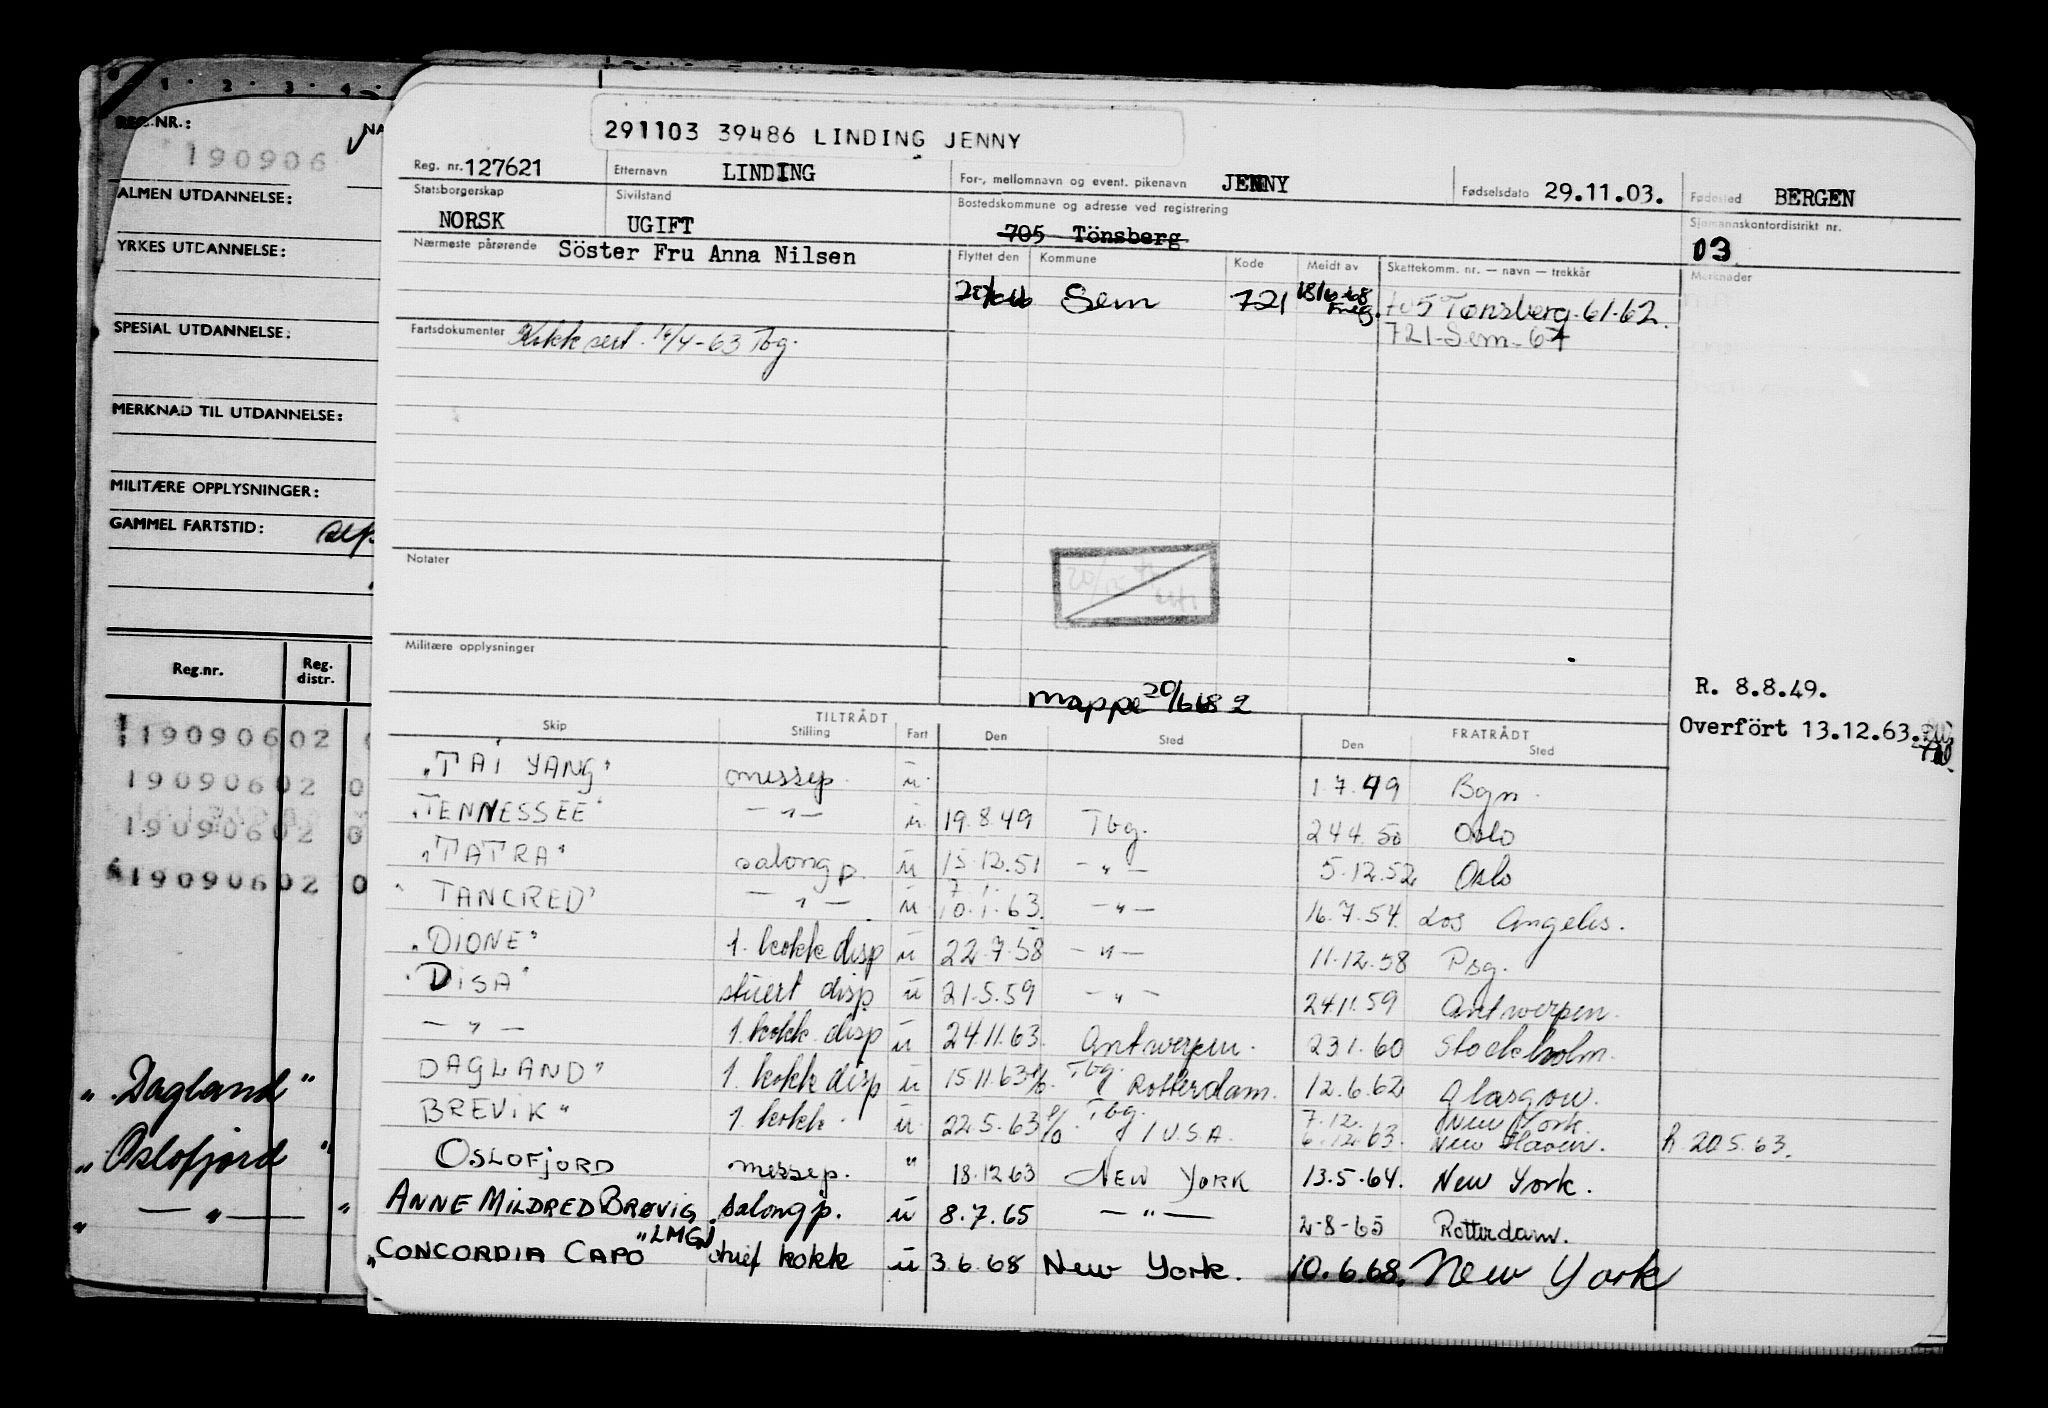 1 · 2 · 3 · 4 ·
REG.NR.: NA
190906
ALMEN UTDANNELSE:
YRKES UTDANNELSE:
SPESIAL UTDANNELSE:
MERKNAD TIL UTDANNELSE:
MILITÆRE OPPLYSNINGER:
GAMMEL FARTSTID:
Reg.nr. Reg. distr.
190906 02
190906 02 0
190906 02 0
190906 02 0
„Dagland"
„Oslofjord"
„ — „ — "
291103 39486 LINDING JENNY
Reg. nr. 127621 Etternavn LINDING For-, mellomnavn og event. pikenavn JENNY Fødselsdato 29.11.03. Fødested BERGEN
Statsborgerskap NORSK Sivilstand UGIFT Bostedskommune og adresse ved registrering 705 Tönsberg Sjømannskontordistrikt nr. 03
Nærmeste pårørende Söster Fru Anna Nilsen Flyttet den Kommune Kode Meldt av Skattekomm. nr. — navn — trekkår Merknader
Sem 721 705 Tønsberg 61-62.
721-Sem-67
Fartsdokumenter Kokk sert. 16/4-63 Tbg.
Notater
Militære opplysninger
Mappe 20/6 68 2
R. 8.8.49.
Overfört 13.12.63.
TILTRÅDT FRATRÅDT
Skip Stilling Fart Den Sted Den Sted
„TAI YANG" messep. u. 1.7.49 Bgn.
„TENNESSEE" — „ — u. 19.8.49 Tbg. 24.4.50 Oslo
„TATRA" salongp. u 15.12.51 — „ — 5.12.52 Oslo
„TANCRED" — „ — u. 7.1. 10.1.63. — „ — 16.7.54. Los Angeles.
„DIONE" 1. kokk disp u 22.7.58 — „ — 11.12.58 Psg.
„DISA" stuert disp u 21.5.59 — „ — 24.11.59 Antwerpen.
— „ — 1. kokk disp u 24.11.63. Antwerpen. 23.1.60 Stockholm.
DAGLAND" 1. kokk disp u 15.11.63 Tbg. Rotterdam. 12.6.62 Glasgow.
BREVIK" 1. kokk. u. 22.5.63 Tbg. / U.S.A. 7.12. New York. 6.12.63. New Haven. R 20.5.63.
OSLOFJORD messep. " 18.12.63 NEW YORK 13.5.64. New York.
ANNE MILDRED BRØVIG salongp. u 8.7.65 — „ — 2-8-65 Rotterdam.
„CONCORDIA CAPO" LMGJ chief kokk u 3.6.68 New York. 10.6.68. New York